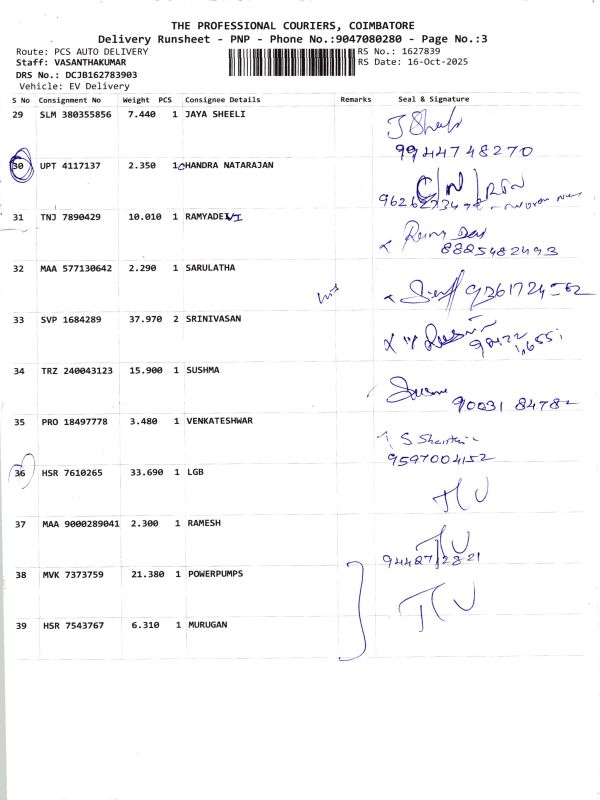 THE PROFESSIONAL COURIERS, COIMBATORE
Delivery Runsheet - PNP - Phone No.:9047080280 - Page No.:3
Route: PCS AUTO DELIVERY RS No.: 1627839
Staff: VASANTHAKUMAR RS Date: 16-Oct-2025
DRS No.: DCJB162783903
Vehicle: EV Delivery
S No Consignment No Weight PCS Consignee Details Remarks Seal & Signature
29 SLM 380355856 7.440 1 JAYA SHEELI
9944748270
30 UPT 4117137 2.350 1 CHANDRA NATARAJAN
C/N/
31 TNJ 7890429 10.010 1 RAMYADEVI
8825482493
32 MAA 577130642 2.290 1 SARULATHA
33 SVP 1684289 37.970 2 SRINIVASAN
34 TRZ 240043123 15.900 1 SUSHMA
90031 84782
35 PRO 18497778 3.480 1 VENKATESHWAR
9597004152
36 HSR 7610265 33.690 1 LGB
37 MAA 9000289041 2.300 1 RAMESH
38 MVK 7373759 21.380 1 POWERPUMPS
39 HSR 7543767 6.310 1 MURUGAN